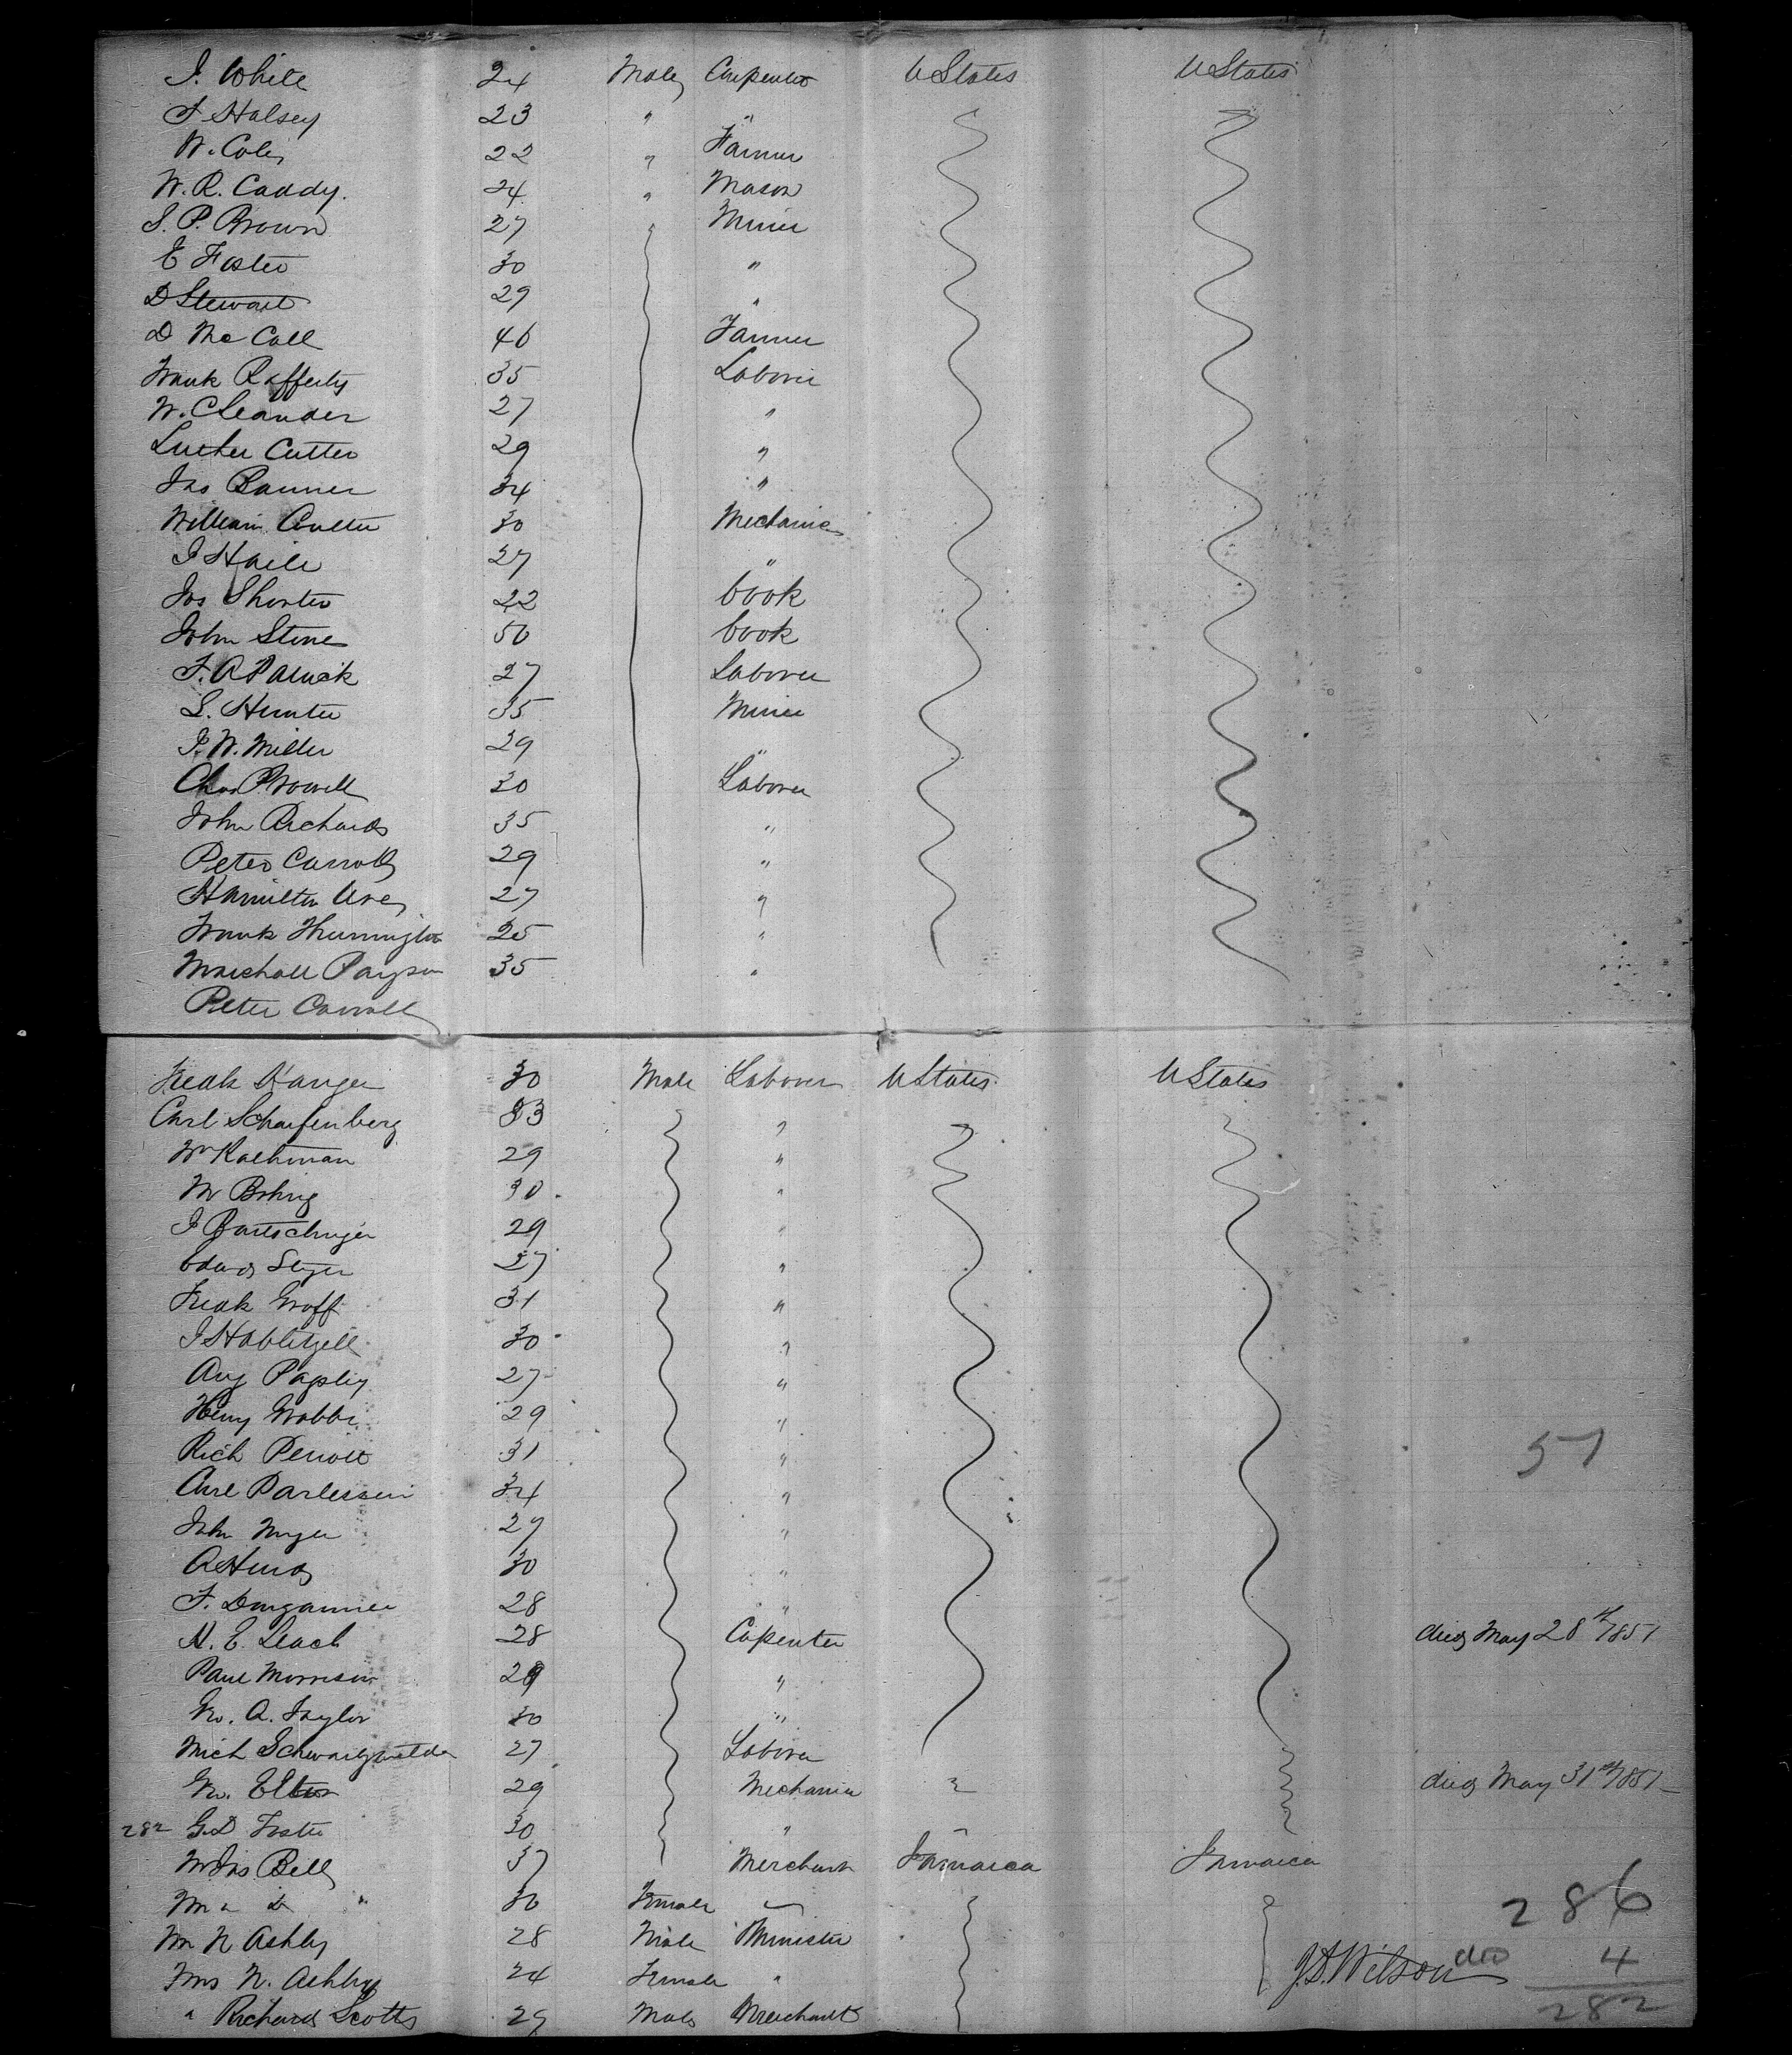 J. White 24 Male Carpenter U States U States
F Halsey 23 " "
W. Coles 22 " Farmer
W. R. Caddy. 24 " Mason
S. P. Brown 27 " Miner
E Foster 30 "
D Stewart 29 "
D McCall 40 Farmer
Frank Rafferty 35 Laborer
W. C Leander 27 "
Luther Cutter 29 "
Jas Banner 34 "
William Coulter 30 Mechanic
J Haile 27 "
Jos Shorter 22 Cook
John Stine 50 Cook
F. A Patrick 27 Laborer
S. Hunter 35 Miner
J. W. Miller 29 "
Chas Prowell 30 Laborer
John Richards 35 "
Peter Carroll 29 "
Hamilton 27 "
Frank 25 "
Marshall Payson 35 "
Peter Carroll
Fredk 30 Male Laborer U States U States
Carl Scharfenberg 33 "
Wm Rathman 29 "
M 30 "
J 29 "
Edward 27 "
Fredk Groff 31 "
J Hablitzell 30 "
Aug 27 "
Henry 29 "
Rich 31 " 57
Carl 34 "
John Myer 27 "
A Hinds 30 "
F. 28 "
H. E. Leach 28 Capenter died May 28th/1851
Paul Morrison 29 "
Geo. A. Taylor 30 "
Mich 27 Laborer
Geo. 29 Mechanic died May 31st/1851
282 G. D Foster 30 "
Mr Jas Bell 37 Merchant Jamaica Jamaica
M " D " 30 Female 286
Mr N Ashby 28 Male Minister
Mrs N. Ashby 24 Female " J. D. Wilson died 4
" Richard Scotts 29 Male Merchant 282